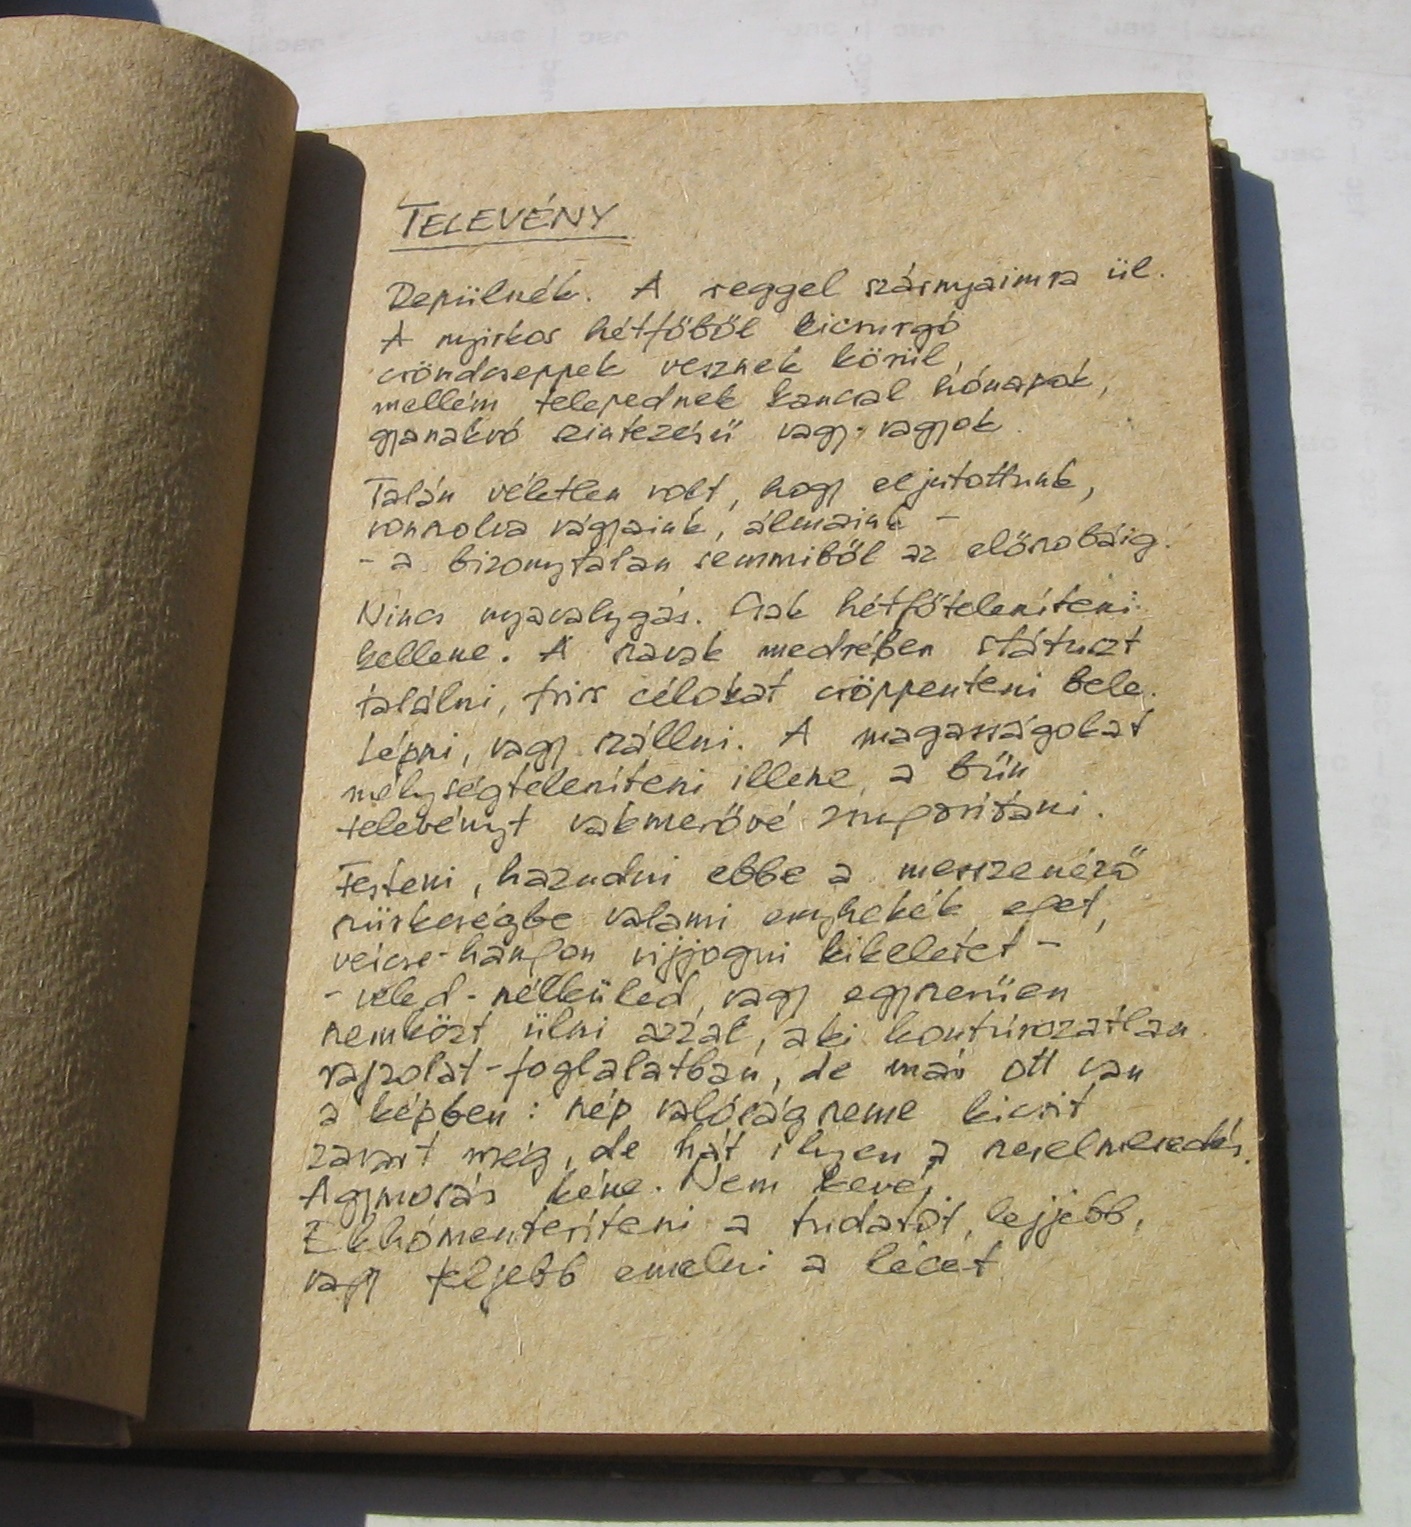 TELEVÉNY
Repülnék. A reggel szárnyaimra ül.
A nyirkos hétfőből kicsurgó
csöndcseppek vesznek körül,
mellém telepednek kancsal hónapok,
gyanakvó színtézisű vagy-vagyok
Talán véletlen volt, hogy eljutottunk,
vonszolva vágyaink, álmaink -
- a bizonytalan semmiből az előszobáig.
Nincs nyavalygás. Csak hétfőteleníteni
kellene. A szavak medrében státuszt
találni, friss célokat csöppenteni bele.
Lépni, vagy szállni. A magasságokat
mélységteleníteni illene, a bűn
televényt vakmerővé szuporítani.
Festeni, hazudni ebbe a messzenéző
szürkeségbe valami enyhekék eget,
vércse-hangon vijjogni kikeletet -
- veled-nélküled, vagy egyszerűen
szemközt ülni azzal, aki kontúrozatlan
rajzolat-foglalatban, de már ott van
a képben: szép valóságszeme kicsit
zavart még, de hát ilyen a szerelmesedés.
Agymosás kéne. Nem kevés
Ekhómentesíteni a tudatot, lejjebb,
vagy feljebb emelni a lécet